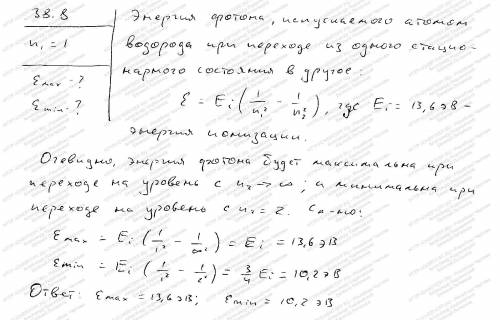 38.8
n₁ = 1
εmax - ?
εmin - ?
Энергия фотона, испускаемого атомом
водорода при переходе из одного стацио-
нарного состояния в другое:
ε = Ei (1/n₁² - 1/n₂²), где Ei = 13,6 эВ -
энергия ионизации.
Очевидно, энергия фотона будет максимальна при
переходе на уровень с n₂ → ∞; а минимальна при
переходе на уровень с n₂ = 2. Сл-но:
εmax = Ei (1/1² - 1/∞²) = Ei = 13,6 эВ
εmin = Ei (1/1² - 1/2²) = 3/4 Ei = 10,2 эВ
Ответ: εmax = 13,6 эВ; εmin = 10,2 эВ